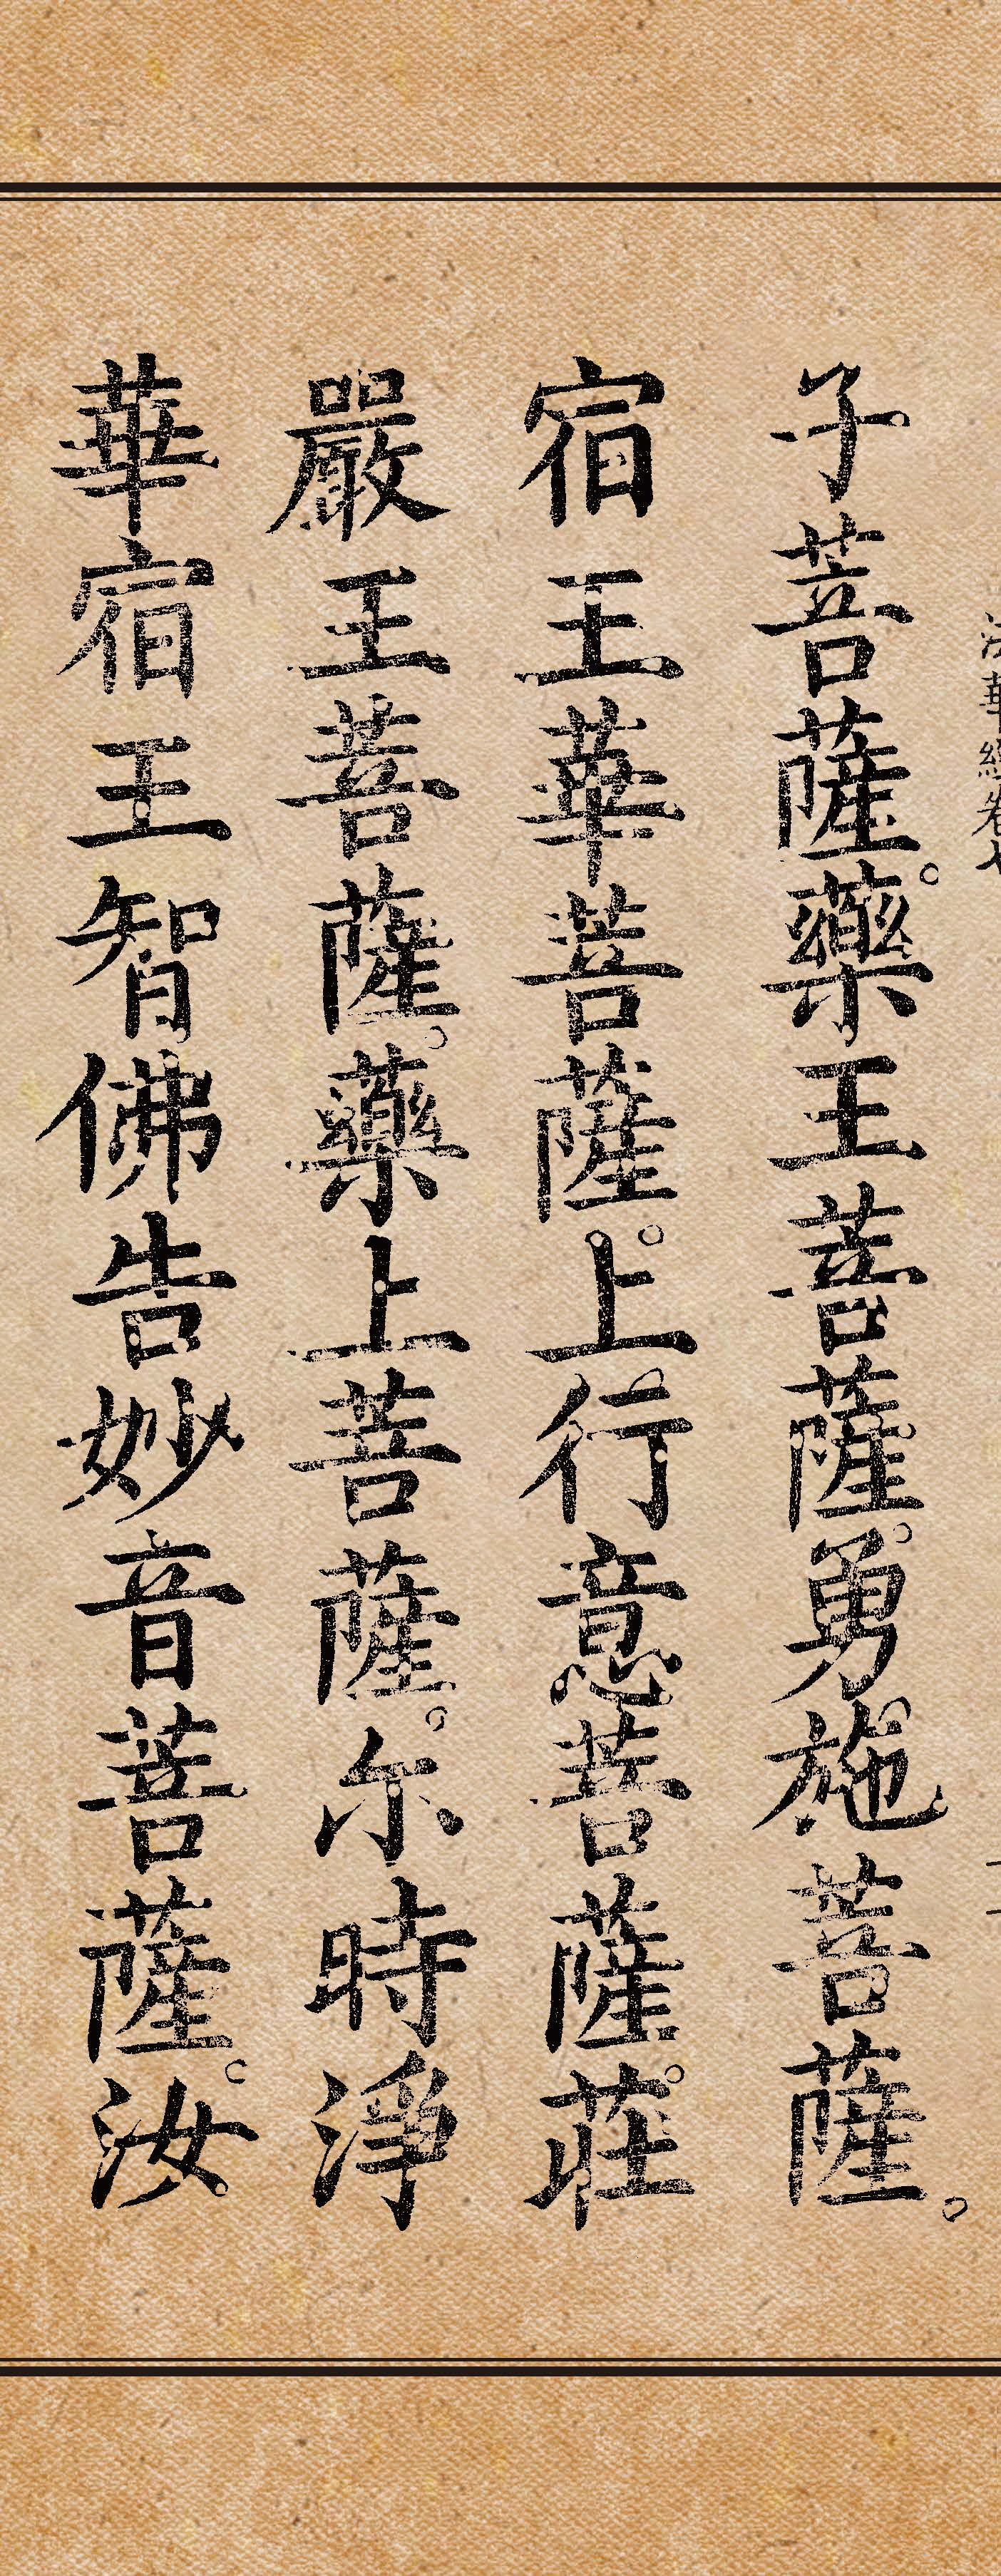 法華經卷七
子菩薩。藥王菩薩。勇施菩薩。
宿王華菩薩。上行意菩薩。莊
嚴王菩薩。藥上菩薩。尒時淨
華宿王智佛告妙音菩薩。汝